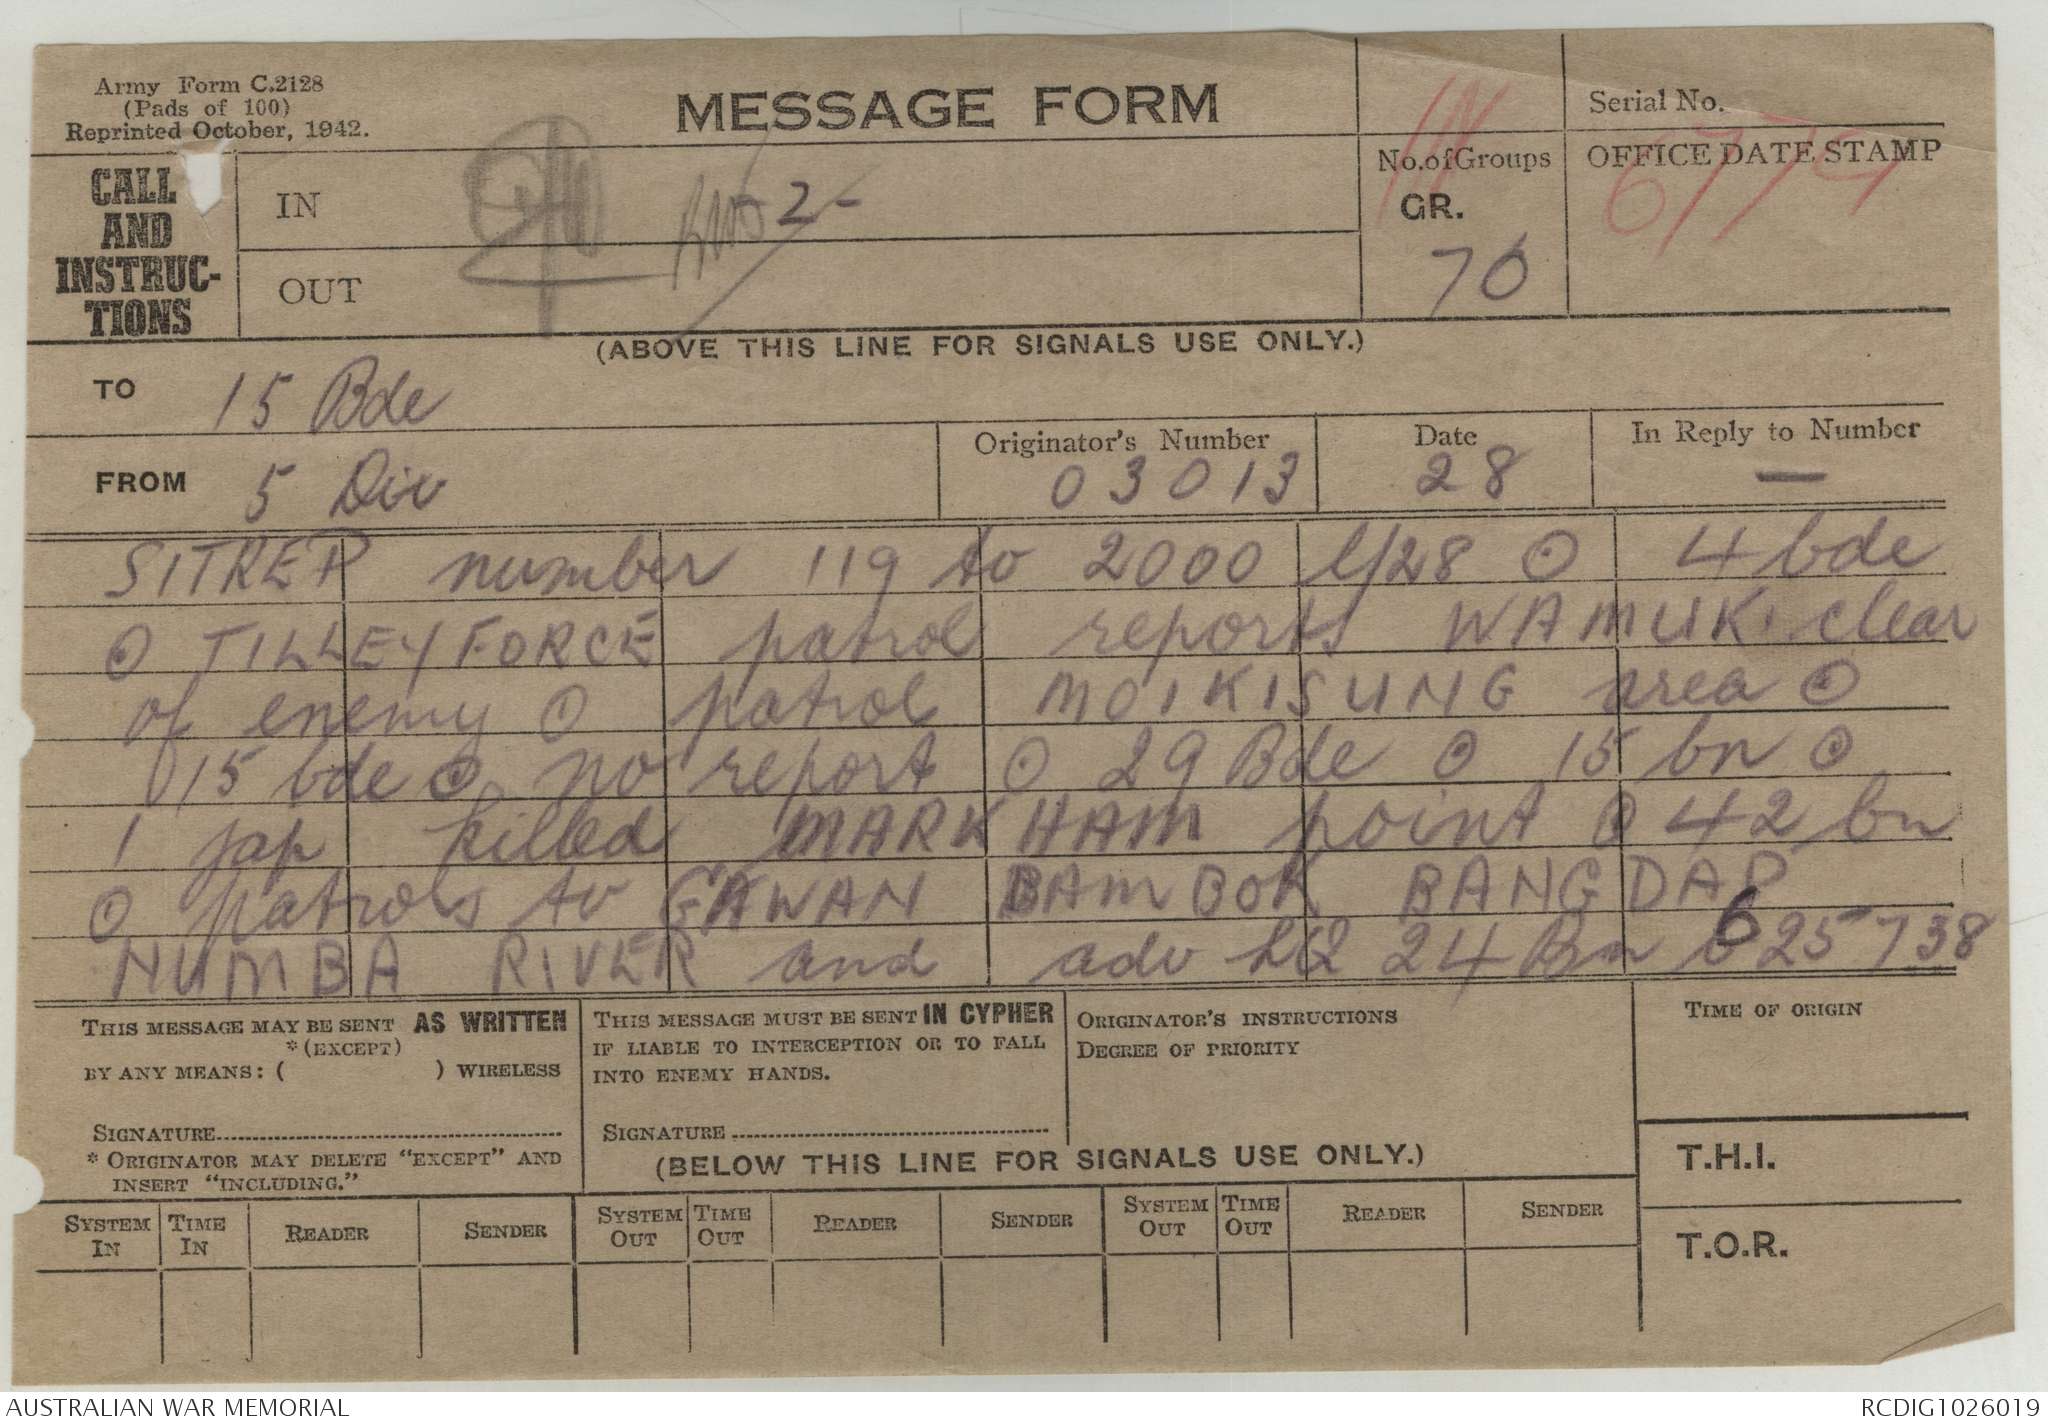 Army Form C.2128
(Pads of 100)
Reprinted October, 1942.
MESSAGE FORM
IN
Serial No.
6774
CALL AND INSTRUC-TIONS
IN
- 2 -
OUT
No. of Groups
GR.
76
OFFICE DATE STAMP
(ABOVE THIS LINE FOR SIGNALS USE ONLY.)
TO 15 Bde
FROM 5 Div
Originator's Number
03013
Date
28
In Reply to Number
—
SITREP number 119 to 2000 L/28 ⊙ 4 bde
⊙ TILLEYFORCE patrol reports WAMUKI clear
of enemy ⊙ patrol MOIKISUNG area ⊙
15 bde ⊙ no report ⊙ 29 Bde ⊙ 15 bn ⊙
1 jap killed MARKHAM point ⊙ 42 bn
⊙ patrols to GAWAN BAMBOK BANGDAP
NUMBA RIVER and adv HQ 24 Bn 625738
THIS MESSAGE MAY BE SENT AS WRITTEN
*(EXCEPT)
BY ANY MEANS: ( ) WIRELESS
SIGNATURE
* ORIGINATOR MAY DELETE "EXCEPT" AND
INSERT "INCLUDING."
THIS MESSAGE MUST BE SENT IN CYPHER
IF LIABLE TO INTERCEPTION OR TO FALL
INTO ENEMY HANDS.
SIGNATURE
ORIGINATOR'S INSTRUCTIONS
DEGREE OF PRIORITY
TIME OF ORIGIN
T.H.I.
T.O.R.
(BELOW THIS LINE FOR SIGNALS USE ONLY.)
SYSTEM IN TIME IN READER SENDER SYSTEM OUT TIME OUT READER SENDER SYSTEM OUT TIME OUT READER SENDER
AUSTRALIAN WAR MEMORIAL
RCDIG1026019